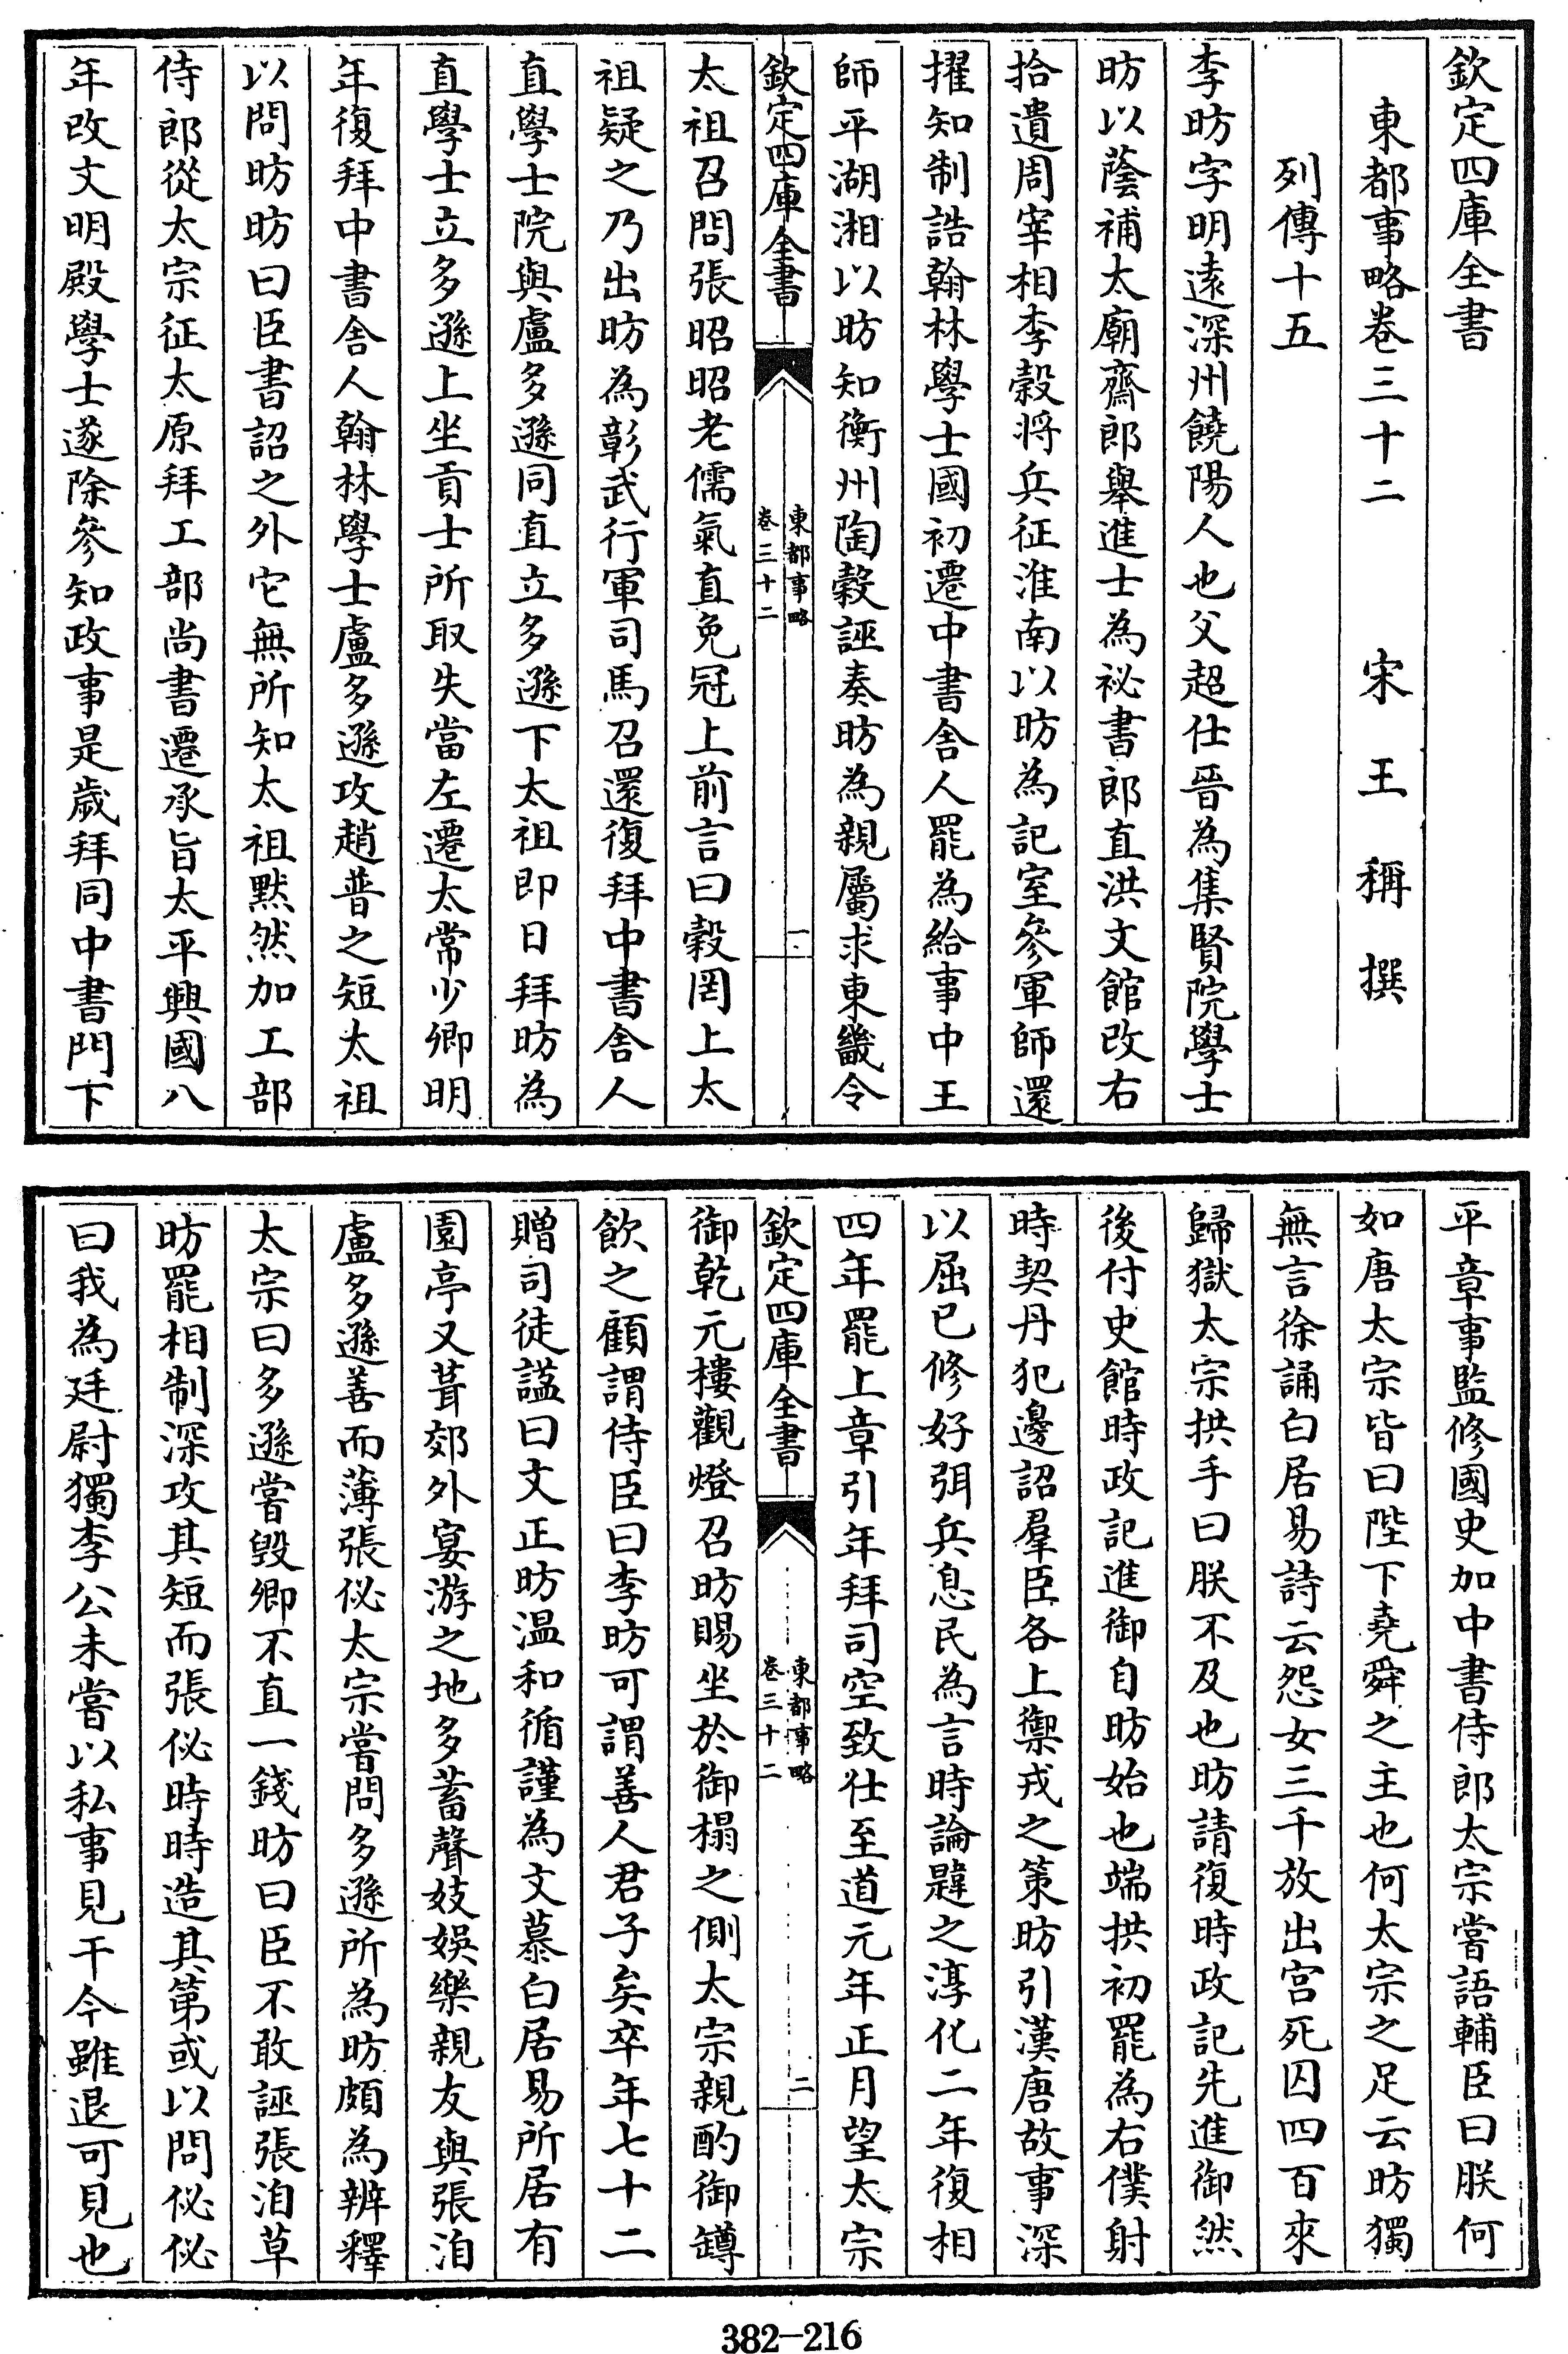 欽定四庫全書
東都事略卷三十二　宋　王稱　撰
列傳十五
李昉字明遠深州饒陽人也父超仕晉為集賢院學士
昉以蔭補太廟齋郎舉進士為祕書郎直洪文館改右
拾遺周宰相李穀將兵征淮南以昉為記室參軍師還
擢知制誥翰林學士國初遷中書舍人罷為給事中王
師平湖湘以昉知衡州陶穀誣奏昉為親屬求東畿令
欽定四庫全書
東都事略
卷三十二
一
太祖召問張昭昭老儒氣直免冠上前言曰穀罔上太
祖疑之乃出昉為彰武行軍司馬召還復拜中書舍人
直學士院與盧多遜同直立多遜下太祖即日拜昉為
直學士立多遜上坐貢士所取失當左遷太常少卿明
年復拜中書舍人翰林學士盧多遜攻趙普之短太祖
以問昉昉曰臣書詔之外它無所知太祖黙然加工部
侍郎從太宗征太原拜工部尚書遷承旨太平興國八
年改文明殿學士遂除參知政事是歲拜同中書門下
平章事監修國史加中書侍郎太宗嘗語輔臣曰朕何
如唐太宗皆曰陛下堯舜之主也何太宗之足云昉獨
無言徐誦白居易詩云怨女三千放出宮死囚四百來
歸獄太宗拱手曰朕不及也昉請復時政記先進御然
後付史館時政記進御自昉始也端拱初罷為右僕射
時契丹犯邊詔羣臣各上禦戎之策昉引漢唐故事深
以屈已修好弭兵息民為言時論韙之淳化二年復相
四年罷上章引年拜司空致仕至道元年正月望太宗
欽定四庫全書
東都事略
卷三十二
二
御乾元樓觀燈召昉賜坐於御榻之側太宗親酌御罇
飲之顧謂侍臣曰李昉可謂善人君子矣卒年七十二
贈司徒諡曰文正昉温和循謹為文慕白居易所居有
園亭又葺郊外宴游之地多蓄聲妓娛樂親友與張洎
盧多遜善而薄張佖太宗嘗問多遜所為昉頗為辨釋
太宗曰多遜嘗毀卿不直一錢昉曰臣不敢誣張洎草
昉罷相制深攻其短而張佖時時造其第或以問佖佖
曰我為廷尉獨李公未嘗以私事見干今雖退可見也
382-216